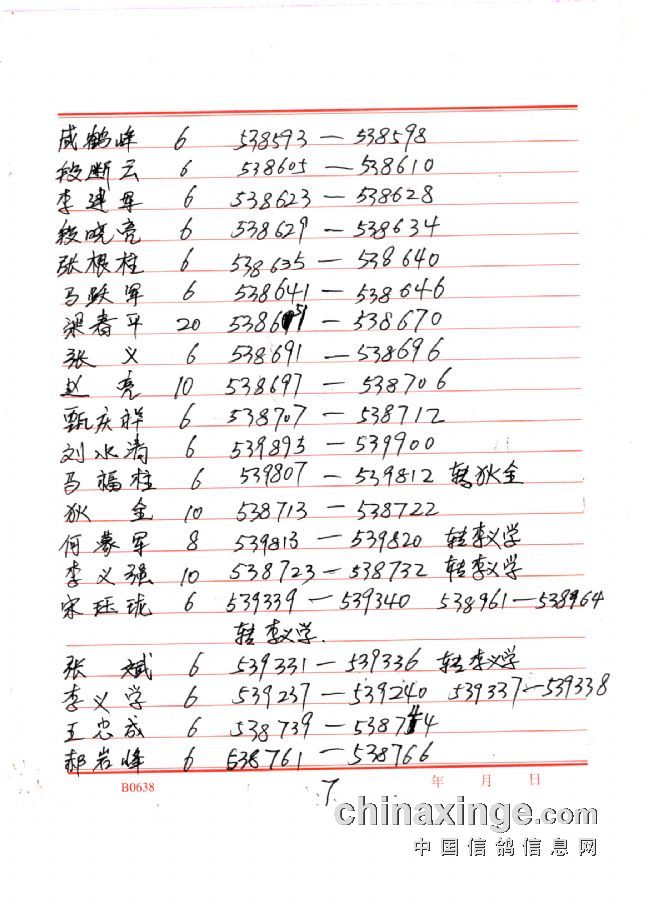 咸鹤峰 6 538593—538598
段断云 6 538605—538610
李建军 6 538623—538628
段晓亮 6 538629—538634
张根柱 6 538635—538640
马跃军 6 538641—538646
梁春平 20 538651—538670
张义 6 538691—538696
赵亮 10 538697—538706
甄庆祥 6 538707—538712
刘水清 6 539895—539900
马福柱 6 539807—539812 转狄全
狄全 10 538713—538722
何蒙军 8 539813—539820 转李义学
李义强 10 538723—538732 转李义学
宋珏珑 6 539339—539340 538961—538964
转李义学.
张斌 6 539331—539336 转李义学
李义学 6 539237—539240 539337—539338
王忠成 6 538739—538744
郝岩峰 6 538761—538766
B0638 年 月 日
7
chinaxinge.com
中国信鸽信息网